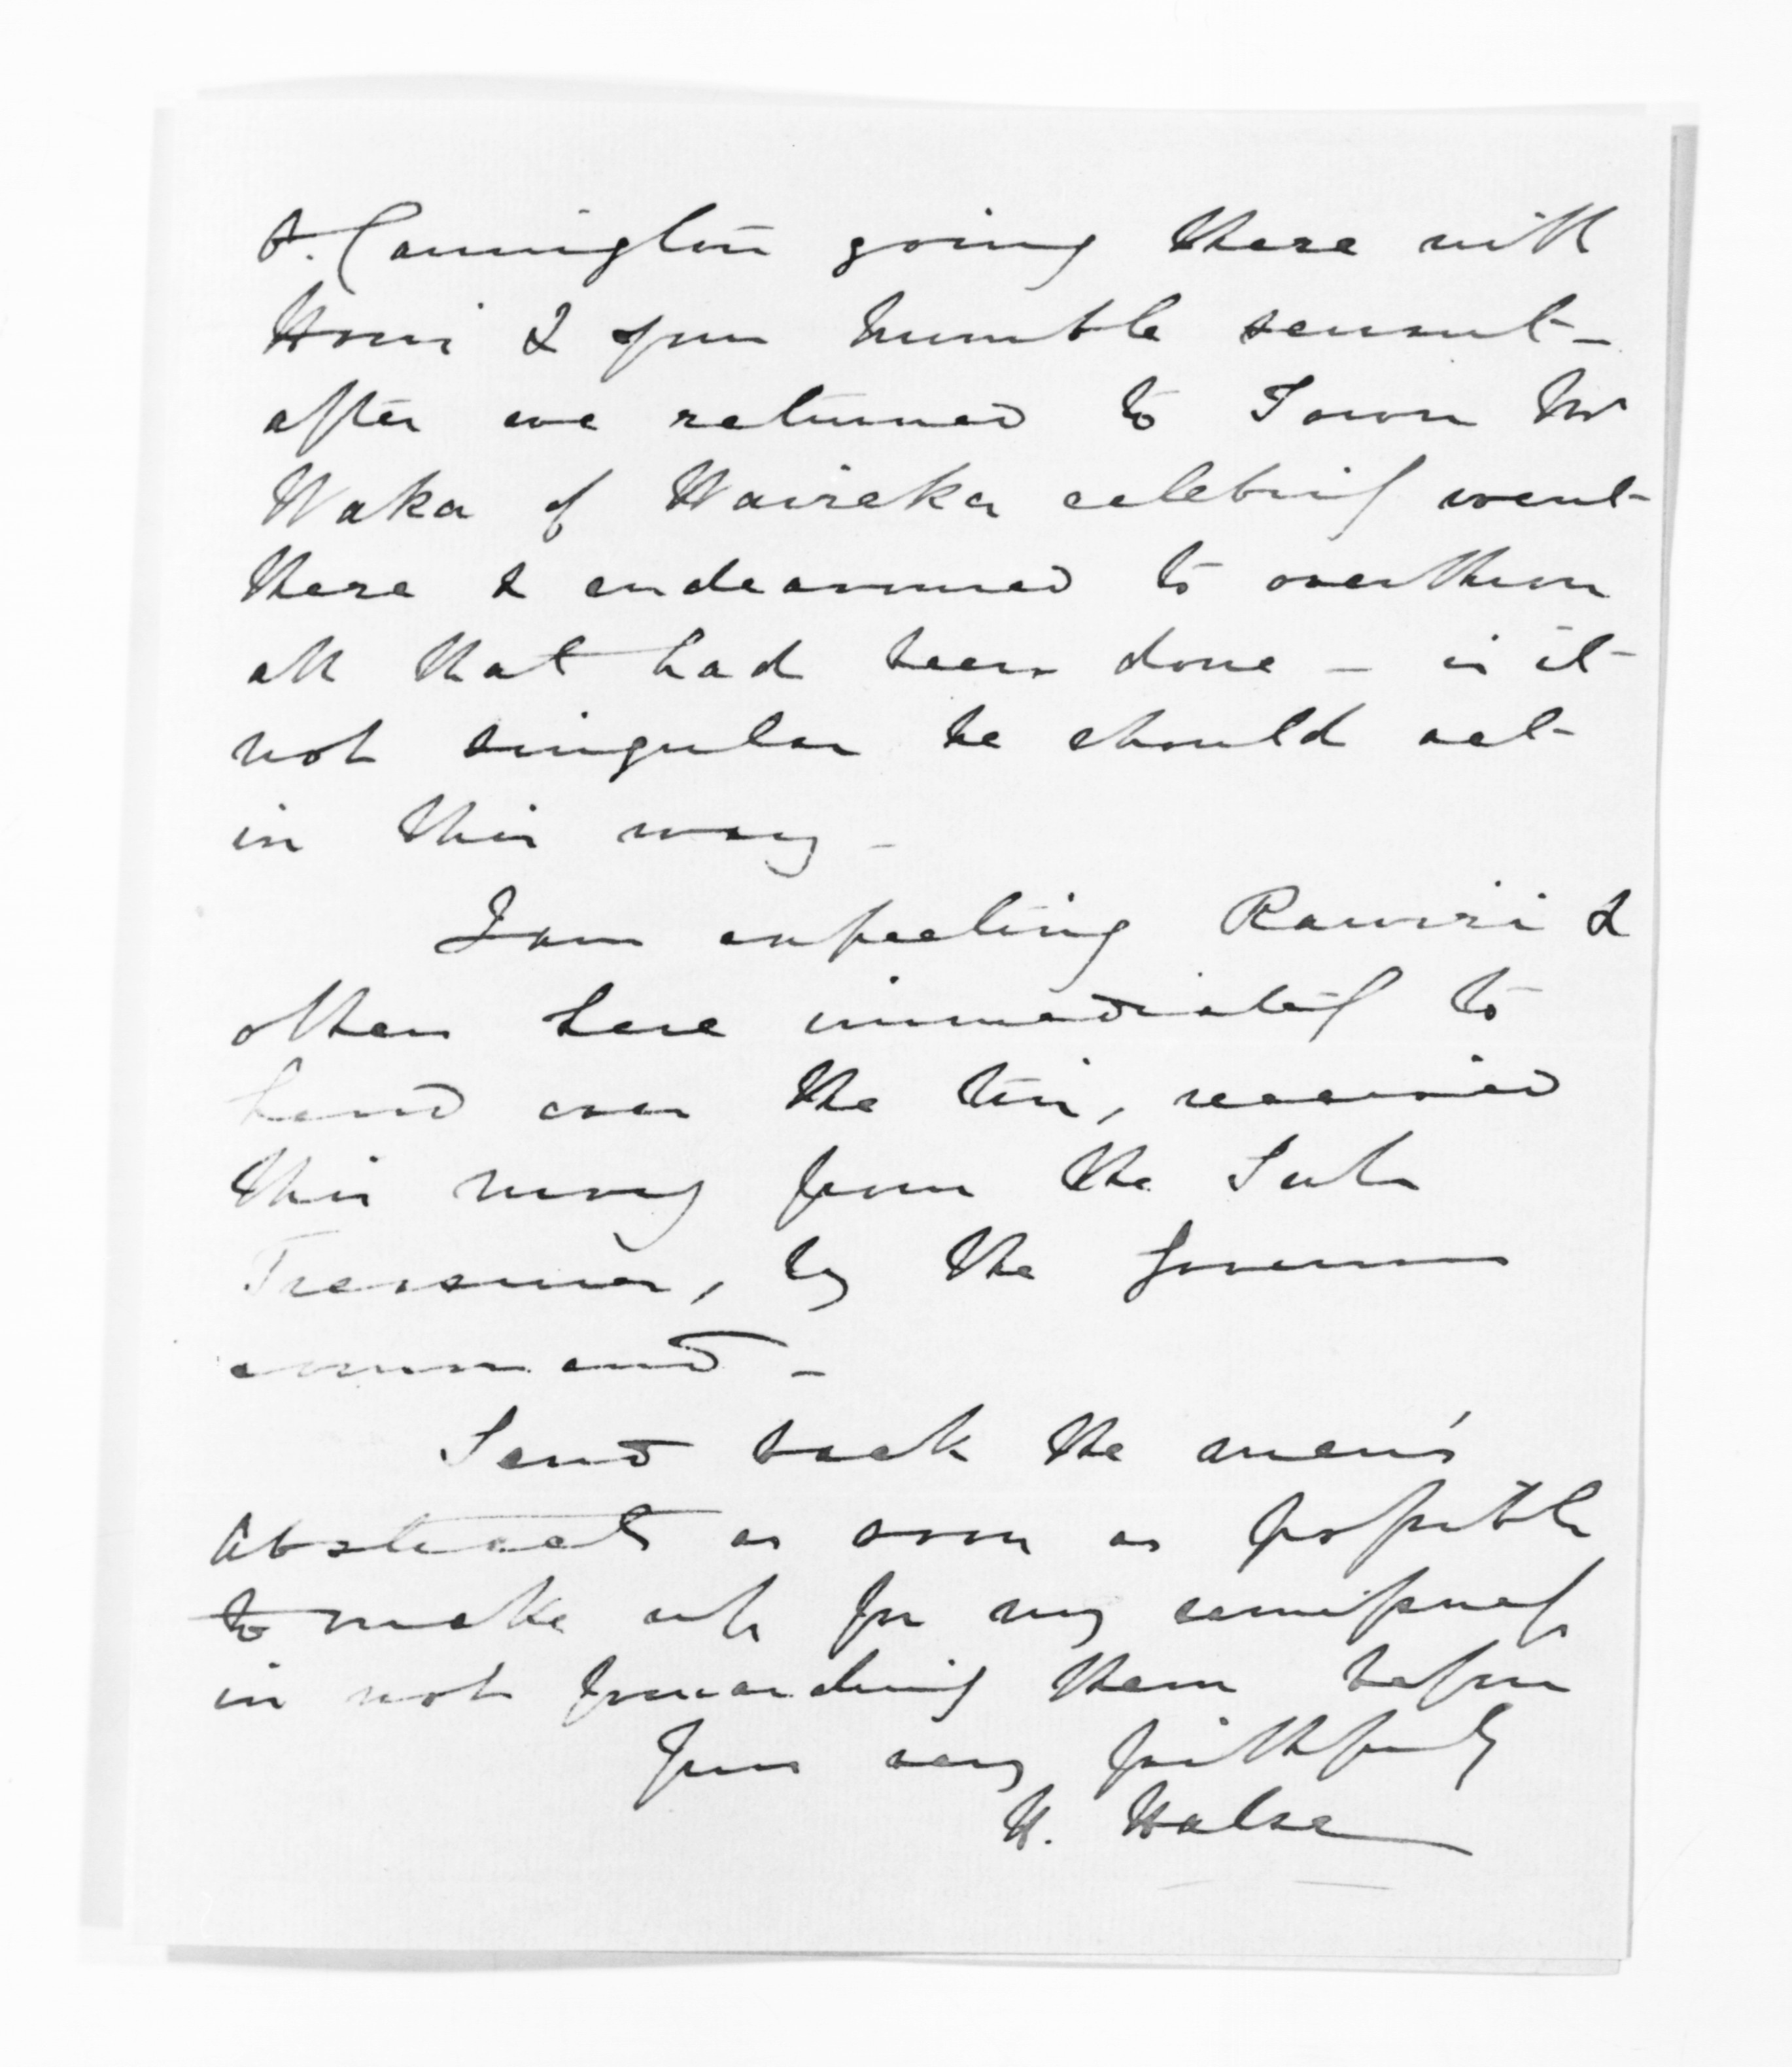 O. Carrington going there with
Honi & your humble servant -
after we returned to Town Mr
Waka of Waireka celebrity went
there & endeavoured to overthrow
all that had been done - is it
not singular he should act
in this way -
I am expecting Rawiri &
others here immediately to
hand over the tin, received
this mong from the Sub
Treasurer, by the Governors
command -
Send back the men's
Abstracts as soon as possible
to make up for my remissness
in not forwarding them before
Yours very faithfully
H. Halse